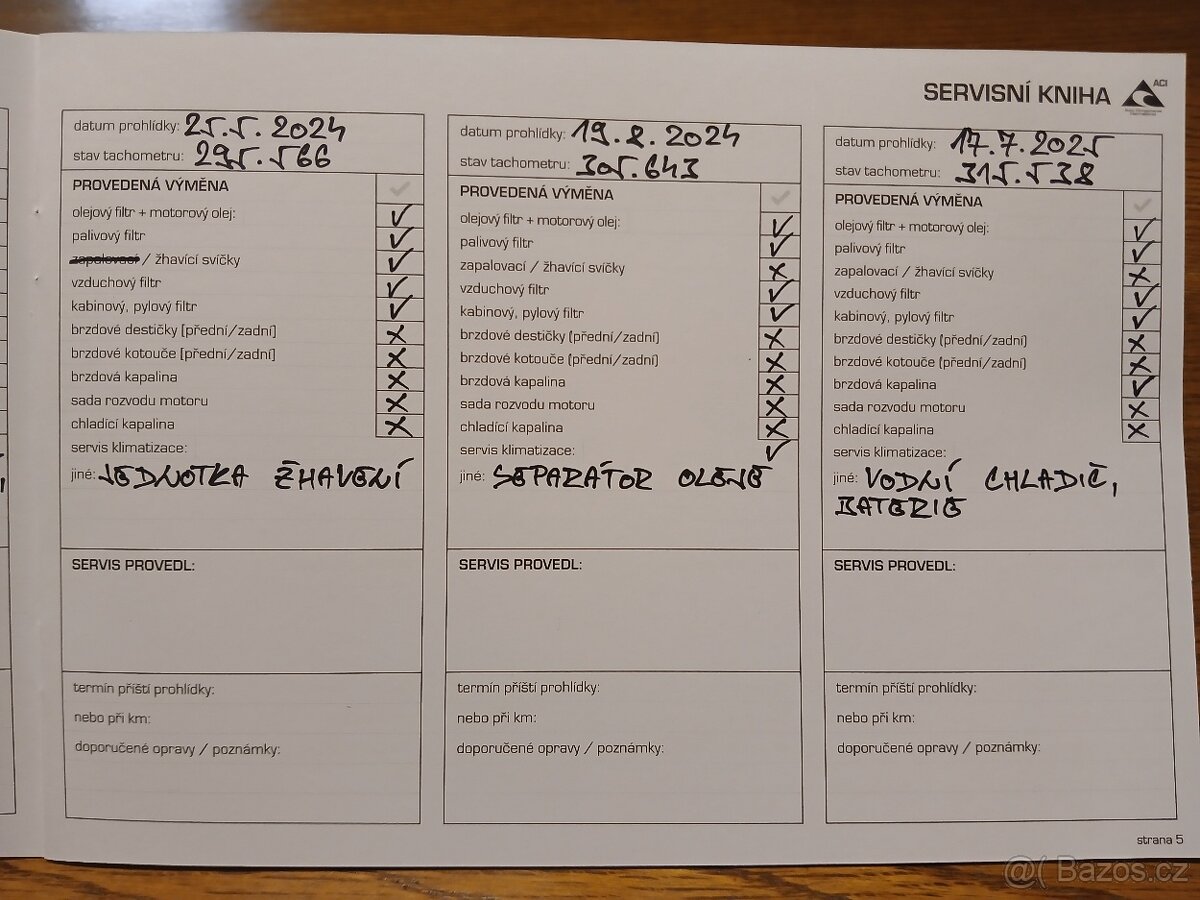 SERVISNÍ KNIHA
ACI
datum prohlídky: 25.5.2024
stav tachometru: 295.566
PROVEDENÁ VÝMĚNA ✓
olejový filtr + motorový olej: ✓
palivový filtr ✓
zapalovací / žhavící svíčky ✓
vzduchový filtr ✓
kabinový, pylový filtr ✓
brzdové destičky [přední/zadní] X
brzdové kotouče [přední/zadní] X
brzdová kapalina X
sada rozvodu motoru X
chladící kapalina X
servis klimatizace:
jiné: JEDNOTKA ŽHAVENÍ
SERVIS PROVEDL:
termín příští prohlídky:
nebo při km:
doporučené opravy / poznámky:
datum prohlídky: 19.8.2024
stav tachometru: 305.643
PROVEDENÁ VÝMĚNA ✓
olejový filtr + motorový olej: ✓
palivový filtr ✓
zapalovací / žhavící svíčky X
vzduchový filtr ✓
kabinový, pylový filtr ✓
brzdové destičky (přední/zadní) X
brzdové kotouče (přední/zadní) X
brzdová kapalina X
sada rozvodu motoru X
chladící kapalina X
servis klimatizace: ✓
jiné: SEPARÁTOR OLEJE
SERVIS PROVEDL:
termín příští prohlídky:
nebo při km:
doporučené opravy / poznámky:
datum prohlídky: 17.7.2025
stav tachometru: 315.538
PROVEDENÁ VÝMĚNA ✓
olejový filtr + motorový olej: ✓
palivový filtr ✓
zapalovací / žhavící svíčky X
vzduchový filtr ✓
kabinový, pylový filtr ✓
brzdové destičky (přední/zadní) X
brzdové kotouče (přední/zadní) X
brzdová kapalina ✓
sada rozvodu motoru X
chladící kapalina X
servis klimatizace:
jiné: VODNÍ CHLADIČ,
BATERIE
SERVIS PROVEDL:
termín příští prohlídky:
nebo při km:
doporučené opravy / poznámky:
strana 5
@( Bazos.cz